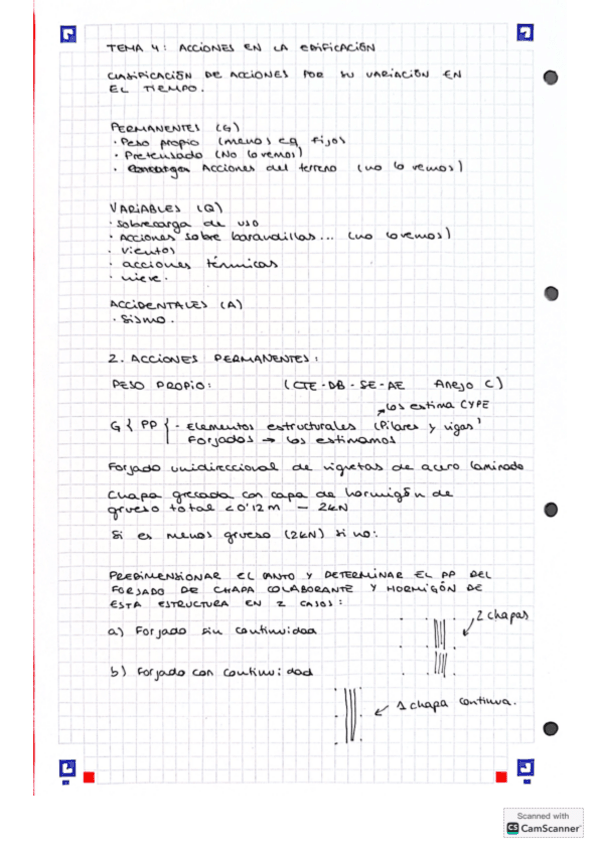 TEMA 4: ACCIONES EN LA EDIFICACIÓN
CLASIFICACIÓN DE ACCIONES POR SU VARIACIÓN EN
EL TIEMPO.
PERMANENTES (G)
· Peso propio (menos eq fijos
· Pretensado (No lo vemos)
· Acciones del terreno (no lo vemos)
VARIABLES (Q)
· Sobrecarga de uso
· Acciones sobre barandillas... (no lo vemos)
· Vientos
· acciones térmicas
· nieve.
ACCIDENTALES (A)
· Sismo.
2. ACCIONES PERMANENTES:
PESO PROPIO: (CTE-DB-SE-AE Anejo C)
los estima CYPE
G { PP { - Elementos estructurales (Pilares y vigas)
Forjados → los estimamos
Forjado unidireccional de viguetas de acero laminado
Chapa grecada con capa de hormigón de
grueso total < 0'12 m — 2kN
Si es menos grueso (2kN) si no:
PREDIMENSIONAR EL CANTO Y DETERMINAR EL PP DEL
FORJADO DE CHAPA COLABORANTE Y HORMIGÓN DE
ESTA ESTRUCTURA EN 2 CASOS:
2 chapas
a) Forjado sin continuidad
b) Forjado con continuidad
1 chapa continua.
Scanned with
CS CamScanner